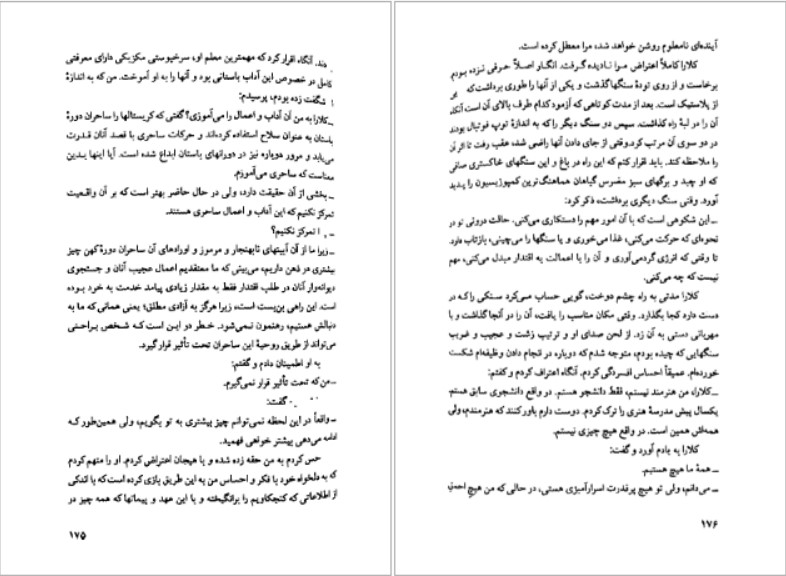 دند. آنگاه اقرار کرد که مهمترین معلم او، سرخپوستی مکزیکی دارای معرفتی
کامل در خصوص این آداب باستانی بود و آنها را به او آموخت. من که به اندازهٔ
شگفت زده بودم، پرسیدم:
ـ کلارا به من آن آداب و اعمال را می‌آموزی؟ گفتی که کریستالها را ساحران دورهٔ
باستان به عنوان سلاح استفاده کرده‌اند و حرکات ساحری با قصد آنان قدرت
می‌یابد و مرور دوباره نیز در دورانهای باستان ابداع شده است. آیا اینها بدین
معناست که ساحری می‌آموزم.
ـ بخشی از آن حقیقت دارد، ولی در حال حاضر بهتر است که بر آن واقعیت
تمرکز نکنیم که این آداب و اعمال ساحری هستند.
ـ را تمرکز نکنیم؟
ـ زیرا ما از آن آیینهای نابهنجار و مرموز و اورادهای آن ساحران دورهٔ کهن چیز
بیشتری در ذهن داریم، می‌بینی که ما معتقدیم اعمال عجیب آنان و جستجوی
دیوانه‌وار آنان در طلب اقتدار فقط به مقدار زیادی پیامد خدمت به خود بوده
است. این راهی بن‌بست است، زیرا هرگز به آزادی مطلق؛ یعنی همانی که ما به
دنبالش هستیم، رهنمون نمی‌شود. خطر در این است که شخص براحتی
می‌تواند از طریق روحیهٔ این ساحران تحت تأثیر قرار گیرد.
به او اطمینان دادم و گفتم:
ـ من که تحت تأثیر قرار نمی‌گیرم.
گفت:
ـ واقعاً در این لحظه نمی‌توانم چیز بیشتری به تو بگویم، ولی همین‌طور که
ادامه می‌دهی بیشتر خواهی فهمید.
حس کردم به من حقه زده شده و با هیجان اعتراض کردم. او را متهم کردم
که به دلخواه خود با فکر و احساس من به این طریق بازی کرده است که با اندکی
از اطلاعاتی که کنجکاویم را برانگیخته و با این عهد و پیمانها که همه چیز در
۱۷۵
آینده‌ای نامعلوم روشن خواهد شد، مرا معطل کرده است.
کلارا کاملاً اعتراض مرا نادیده گرفت. انگار اصلاً حرفی نزده بودم.
برخاست و از روی تودهٔ سنگها گذشت و یکی از آنها را طوری برداشت که
از پلاستیک است. بعد از مدت کوتاهی که آزمود کدام طرف بالای آن است آنگاه
آن را در لبهٔ راه گذاشت. سپس دو سنگ دیگر را که به اندازهٔ توپ فوتبال بودند
در دو سوی آن مرتب کرد. وقتی از جای دادن آنها راضی شد، عقب رفت تا اثر آن
را ملاحظه کند. باید اقرار کنم که این راه در باغ و این سنگهای خاکستری صافی
که او چید و برگهای سبز مضرس گیاهان هماهنگ‌ترین کمپوزیسیون را پدید
آورد. وقتی سنگ دیگری برداشت، ذکر کرد:
ـ این شکوهی است که با آن امور مهم را دستکاری می‌کنی. حالت درونی تو در
نحوه‌ای که حرکت می‌کنی، غذا می‌خوری و یا سنگها را می‌چینی، بازتاب دارد.
تا وقتی که انرژی گردمی‌آوری و آن را با اعمالت به اقتدار مبدل می‌کنی، مهم
نیست که چه می‌کنی.
کلارا مدتی به راه چشم دوخت، گویی حساب می‌کرد سنگی را که در
دست دارد کجا بگذارد. وقتی مکان مناسب را یافت، آن را در آنجا گذاشت و با
مهربانی دستی به آن زد. از لحن صدای او و ترتیب زشت و عجیب و غریب
سنگهایی که چیده بودم، متوجه شدم که دوباره در انجام دادن وظیفه‌ام شکست
خورده‌ام. عمیقاً احساس افسردگی کردم. آنگاه اعتراف کردم و گفتم:
ـ کلارا، من هنرمند نیستم، فقط دانشجو هستم. در واقع دانشجوی سابق هستم.
یکسال پیش مدرسهٔ هنری را ترک کردم. دوست دارم باور کنند که هنرمندم، ولی
همه‌اش همین است. در واقع هیچ چیزی نیستم.
کلارا به یادم آورد و گفت:
ـ همهٔ ما هیچ هستیم.
ـ می‌دانم، ولی تو هیچ پرقدرت اسرارآمیزی هستی، در حالی که من هیچ احمق
۱۷۶